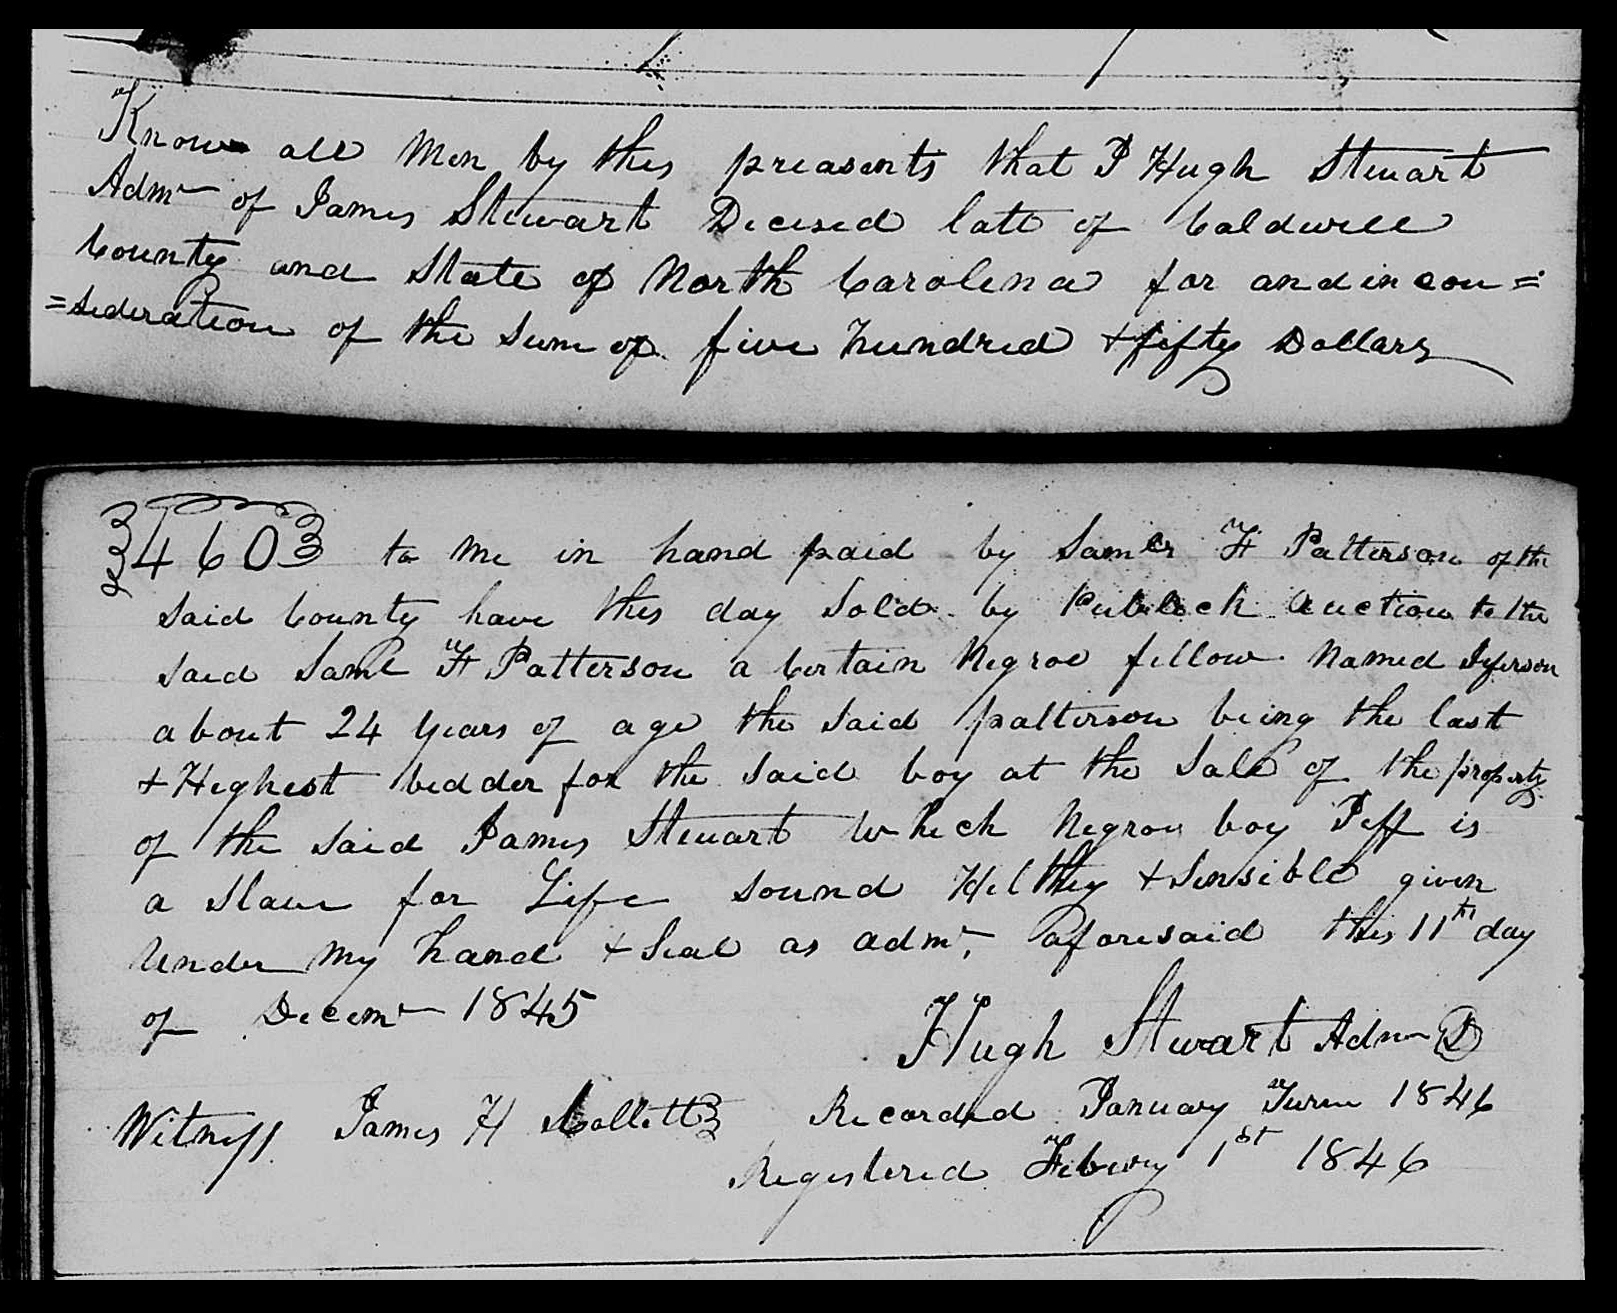 Know all Men by this preasents that I Hugh Steuart
Admr of James Stewart Decised late of Caldwell
County and State of North Carolina for and in con=
=sideration of the Sum of five hundred + fifty Dollars
460 to me in hand paid by Saml F Patterson of the
said County have this day Sold by Publick Auction to the
said Saml F Patterson a Certain Negroe fellow Named Jeferson
about 24 years of age the said patterson being the last
+ Highest bidder for the said boy at the Sale of the property
of the said James Steuart which Negrow boy Jeff is
a Slave for Life sound Helthy + Sensible given
Under my hand + Seal as admr, aforesaid this 11th day
of Decemr 1845
Hugh Stuart Admr
Witness James H Collett
Recorded January Turm 1846
Registered Febury 1st 1846